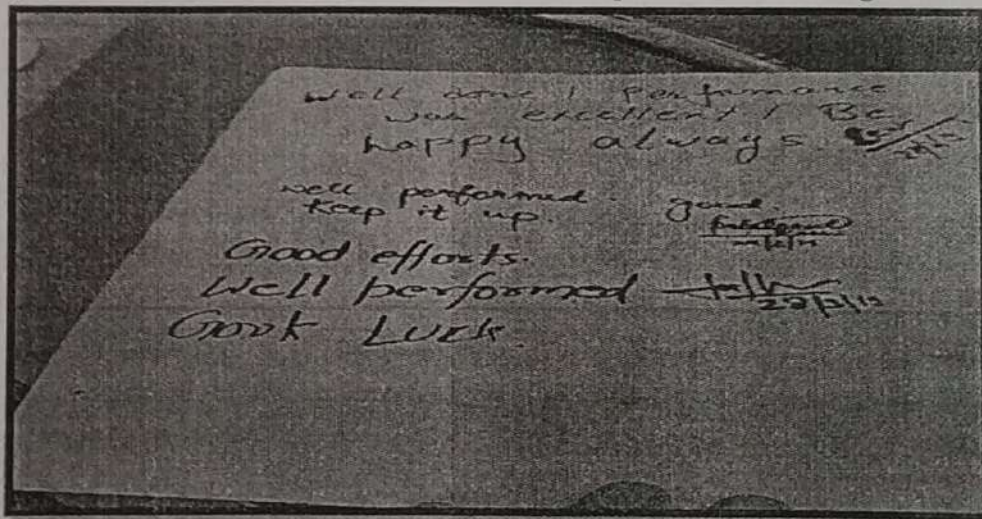 Well done! Performance
was excellent! Be
happy always.
well performed. good.
Keep it up.
Good efforts.
Well performed
Gook Luck.